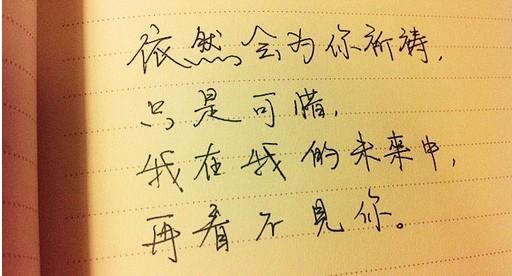 依然会为你祈祷，
只是可惜，
我在我的未來中，
再看不見你。